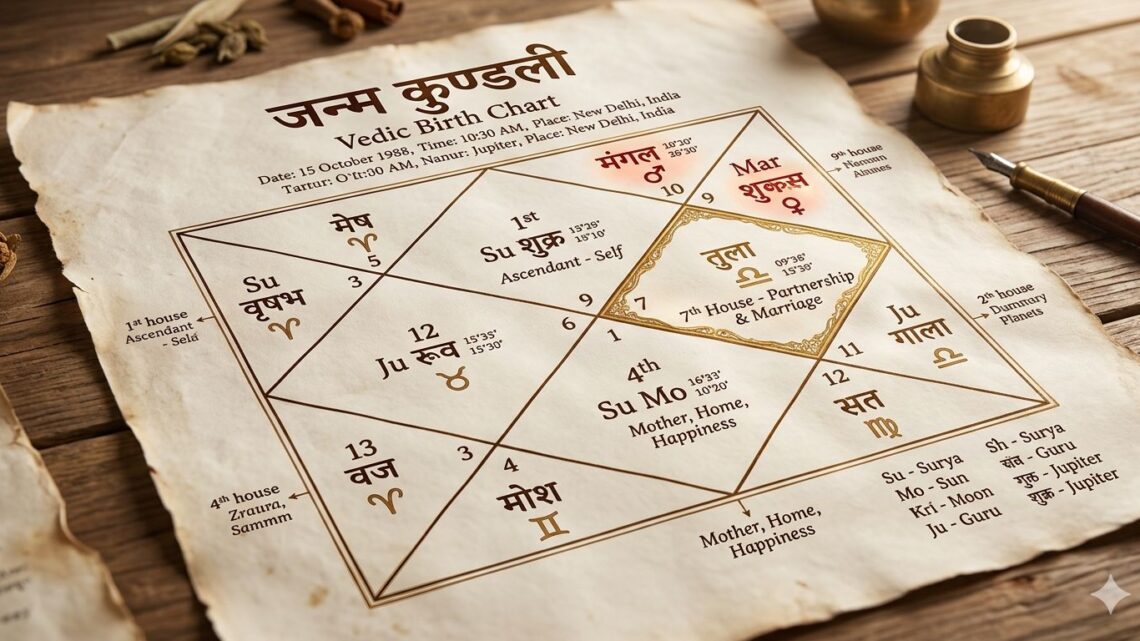 जन्म कुण्डली
Vedic Birth Chart
Date: 15 October 1988, Time: 10:30 AM, Place: New Delhi, India
AM, Nanur: Jupiter, Place: New Delhi, India
मंगल
♂
10
Mar
♀
9
9th house
मेष
♈
5
1st
Su शुक्र 15°25' 15°10'
Ascendant - Self
Su
वृषभ
♈
3
1st house
Ascendant - Self
तुला
♎
09°38'
15°30'
7
7th House - Partnership
& Marriage
9
6
1
12
Ju रुव 15°35' 15°30'
♉
4th
Su Mo 16°33' 10°20'
Mother, Home,
Happiness
Ju
गाला
♎
11
Planets
12
सत
♍
13
वज
♈
3
4th house
Zraura,
Sammm
4
मोश
♊
Mother, Home,
Happiness
Su - Surya
Mo - Sun
Kri - Moon
Ju - Guru
Sh - Surya
- Guru
- Jupiter
शुक्र - Jupiter